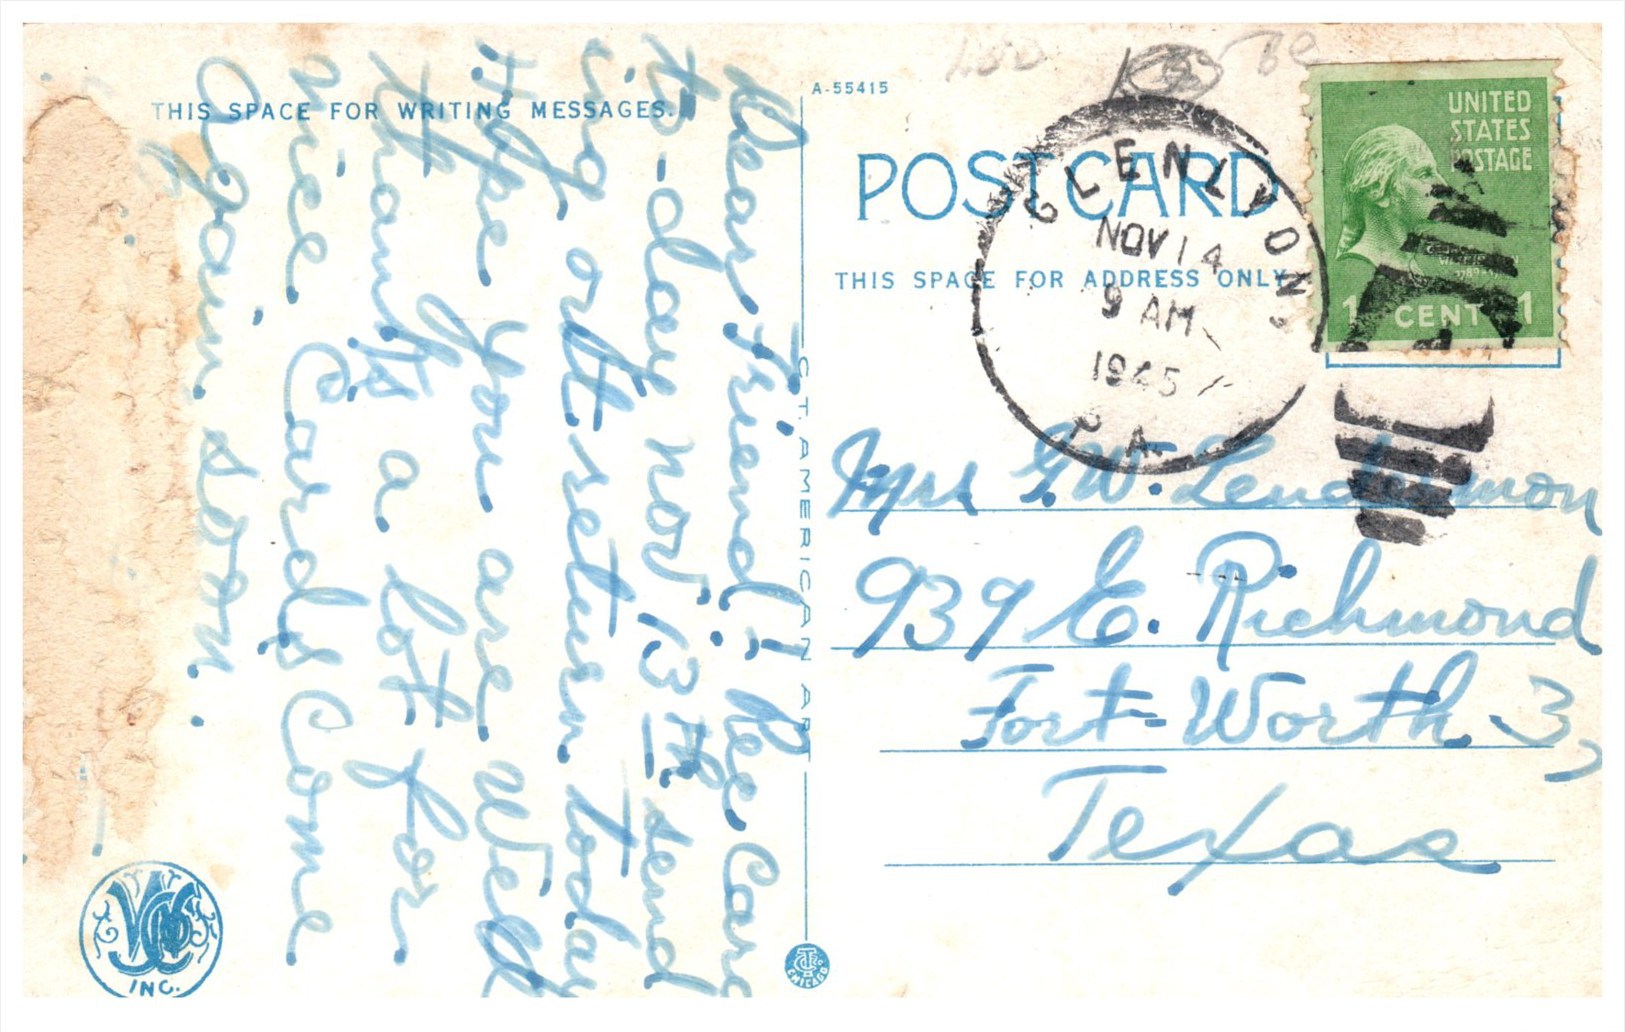 THIS SPACE FOR WRITING MESSAGES.
Dear Friend! Rec Card
to-day nov 13th send
ing ort return today
Hope you are well
thanks a lot for
nice Cards Come
again soon.
A-55415
POST CARD
THIS SPACE FOR ADDRESS ONLY
GLENLYON
NOV 14
9 AM
1945
PA.
UNITED
STATES
POSTAGE
1 CENT 1
Mrs G.W. Lendermon
939 E. Richmond
Fort-Worth 3,
Texas
C. T. AMERICAN ART
CHICAGO
INC.